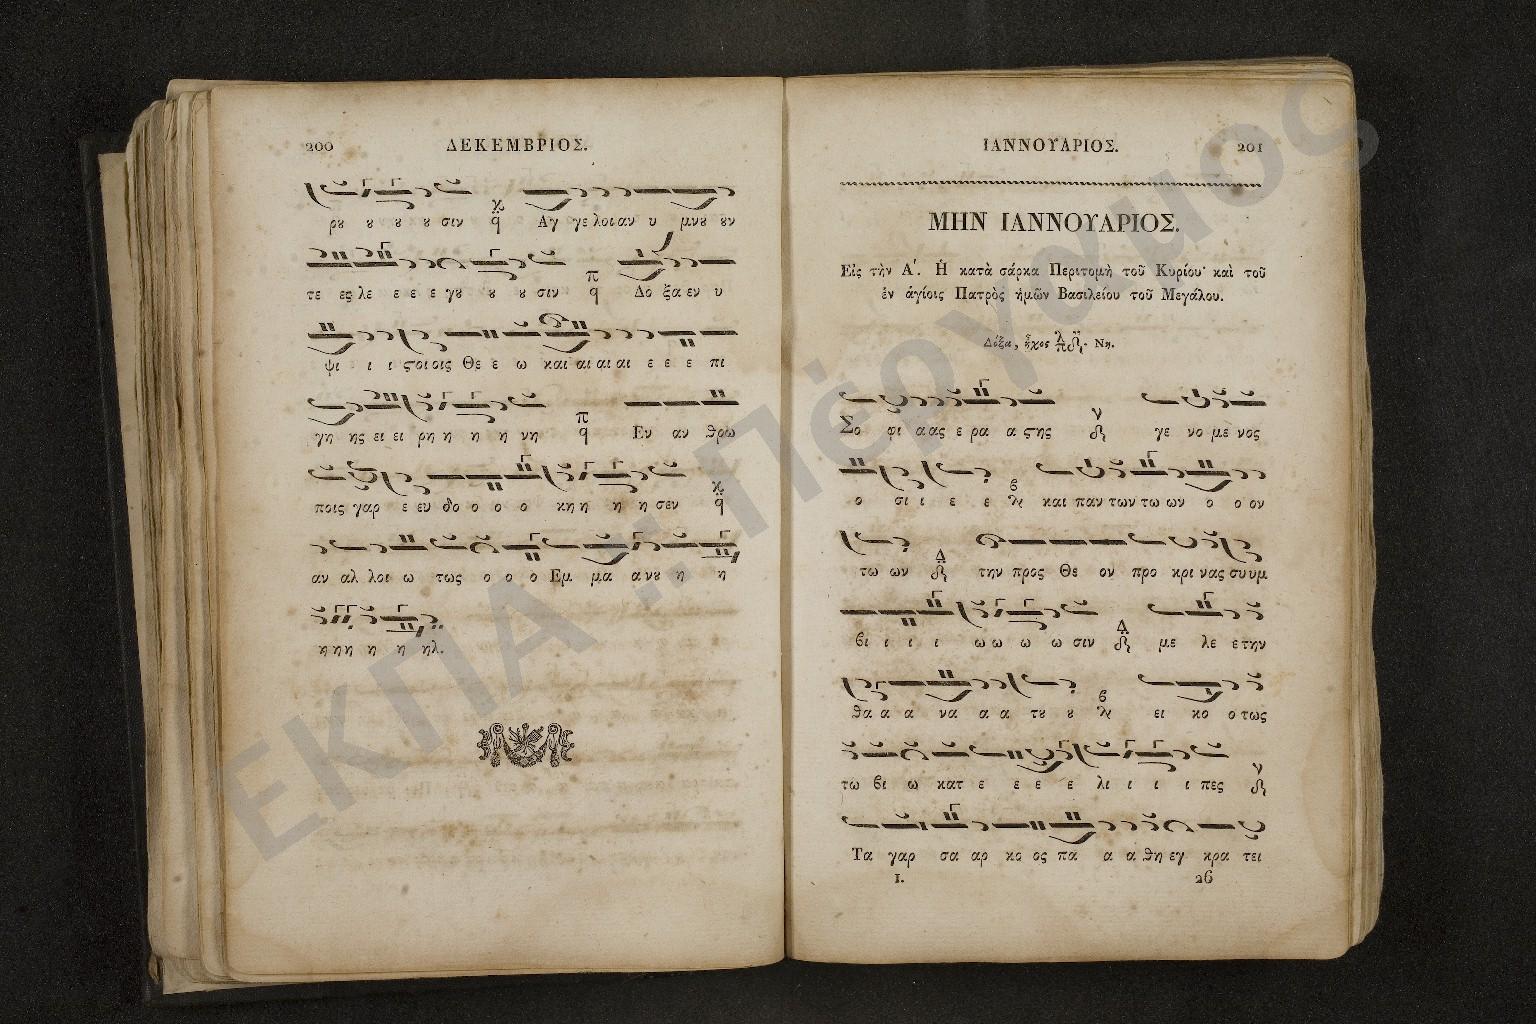 200 ΔΕΚΕΜΒΡΙΟΣ.
ρȣ ȣ ȣ ȣ σιν Αγ γε λοι αν υ μνȣ ȣν
τε ες λε ε ε ε γȣ ȣ ȣ σιν π Δο ξα εν υ
ψι ι ι ϛοι οις Θε ε ω και αι αι αι ε ε ε πι
γη ης ει ει ρη η η η νη π Εν αν θρω
ποις γαρ ε ευ δο ο ο ο κη η η η σεν
αν αλ λοι ω τως ο ο ο Εμ μα α νȣ η η
η η η η η ηλ.
ΙΑΝΝΟΥΑΡΙΟΣ. 201
ΜΗΝ ΙΑΝΝΟΥΑΡΙΟΣ.
Εἰς τὴν Α΄. Ἡ κατὰ σάρκα Περιτομὴ τοῦ Κυρίου· καὶ τοῦ
ἐν ἁγίοις Πατρὸς ἡμῶν Βασιλείου τοῦ Μεγάλου.
Δόξα, ἦχος Νη.
Σο φι α ας ε ρα α ϛης γε νο με νος
ο σι ι ε ε και παν των τω ων ο ο ον
τω ων την προς Θε ον προ κρι νας συ υμ
βι ι ι ι ω ω ω ω σιν με λε ε την
θα α α να α α τȣ ȣ ει κο ο τως
τω βι ω κατ ε ε ε ε λι ι ι ι πες
Τα γαρ σα αρ κο ος πα α α θη εγ κρα τει
I. 26
ΕΚΠΑ :: Πέργαμος